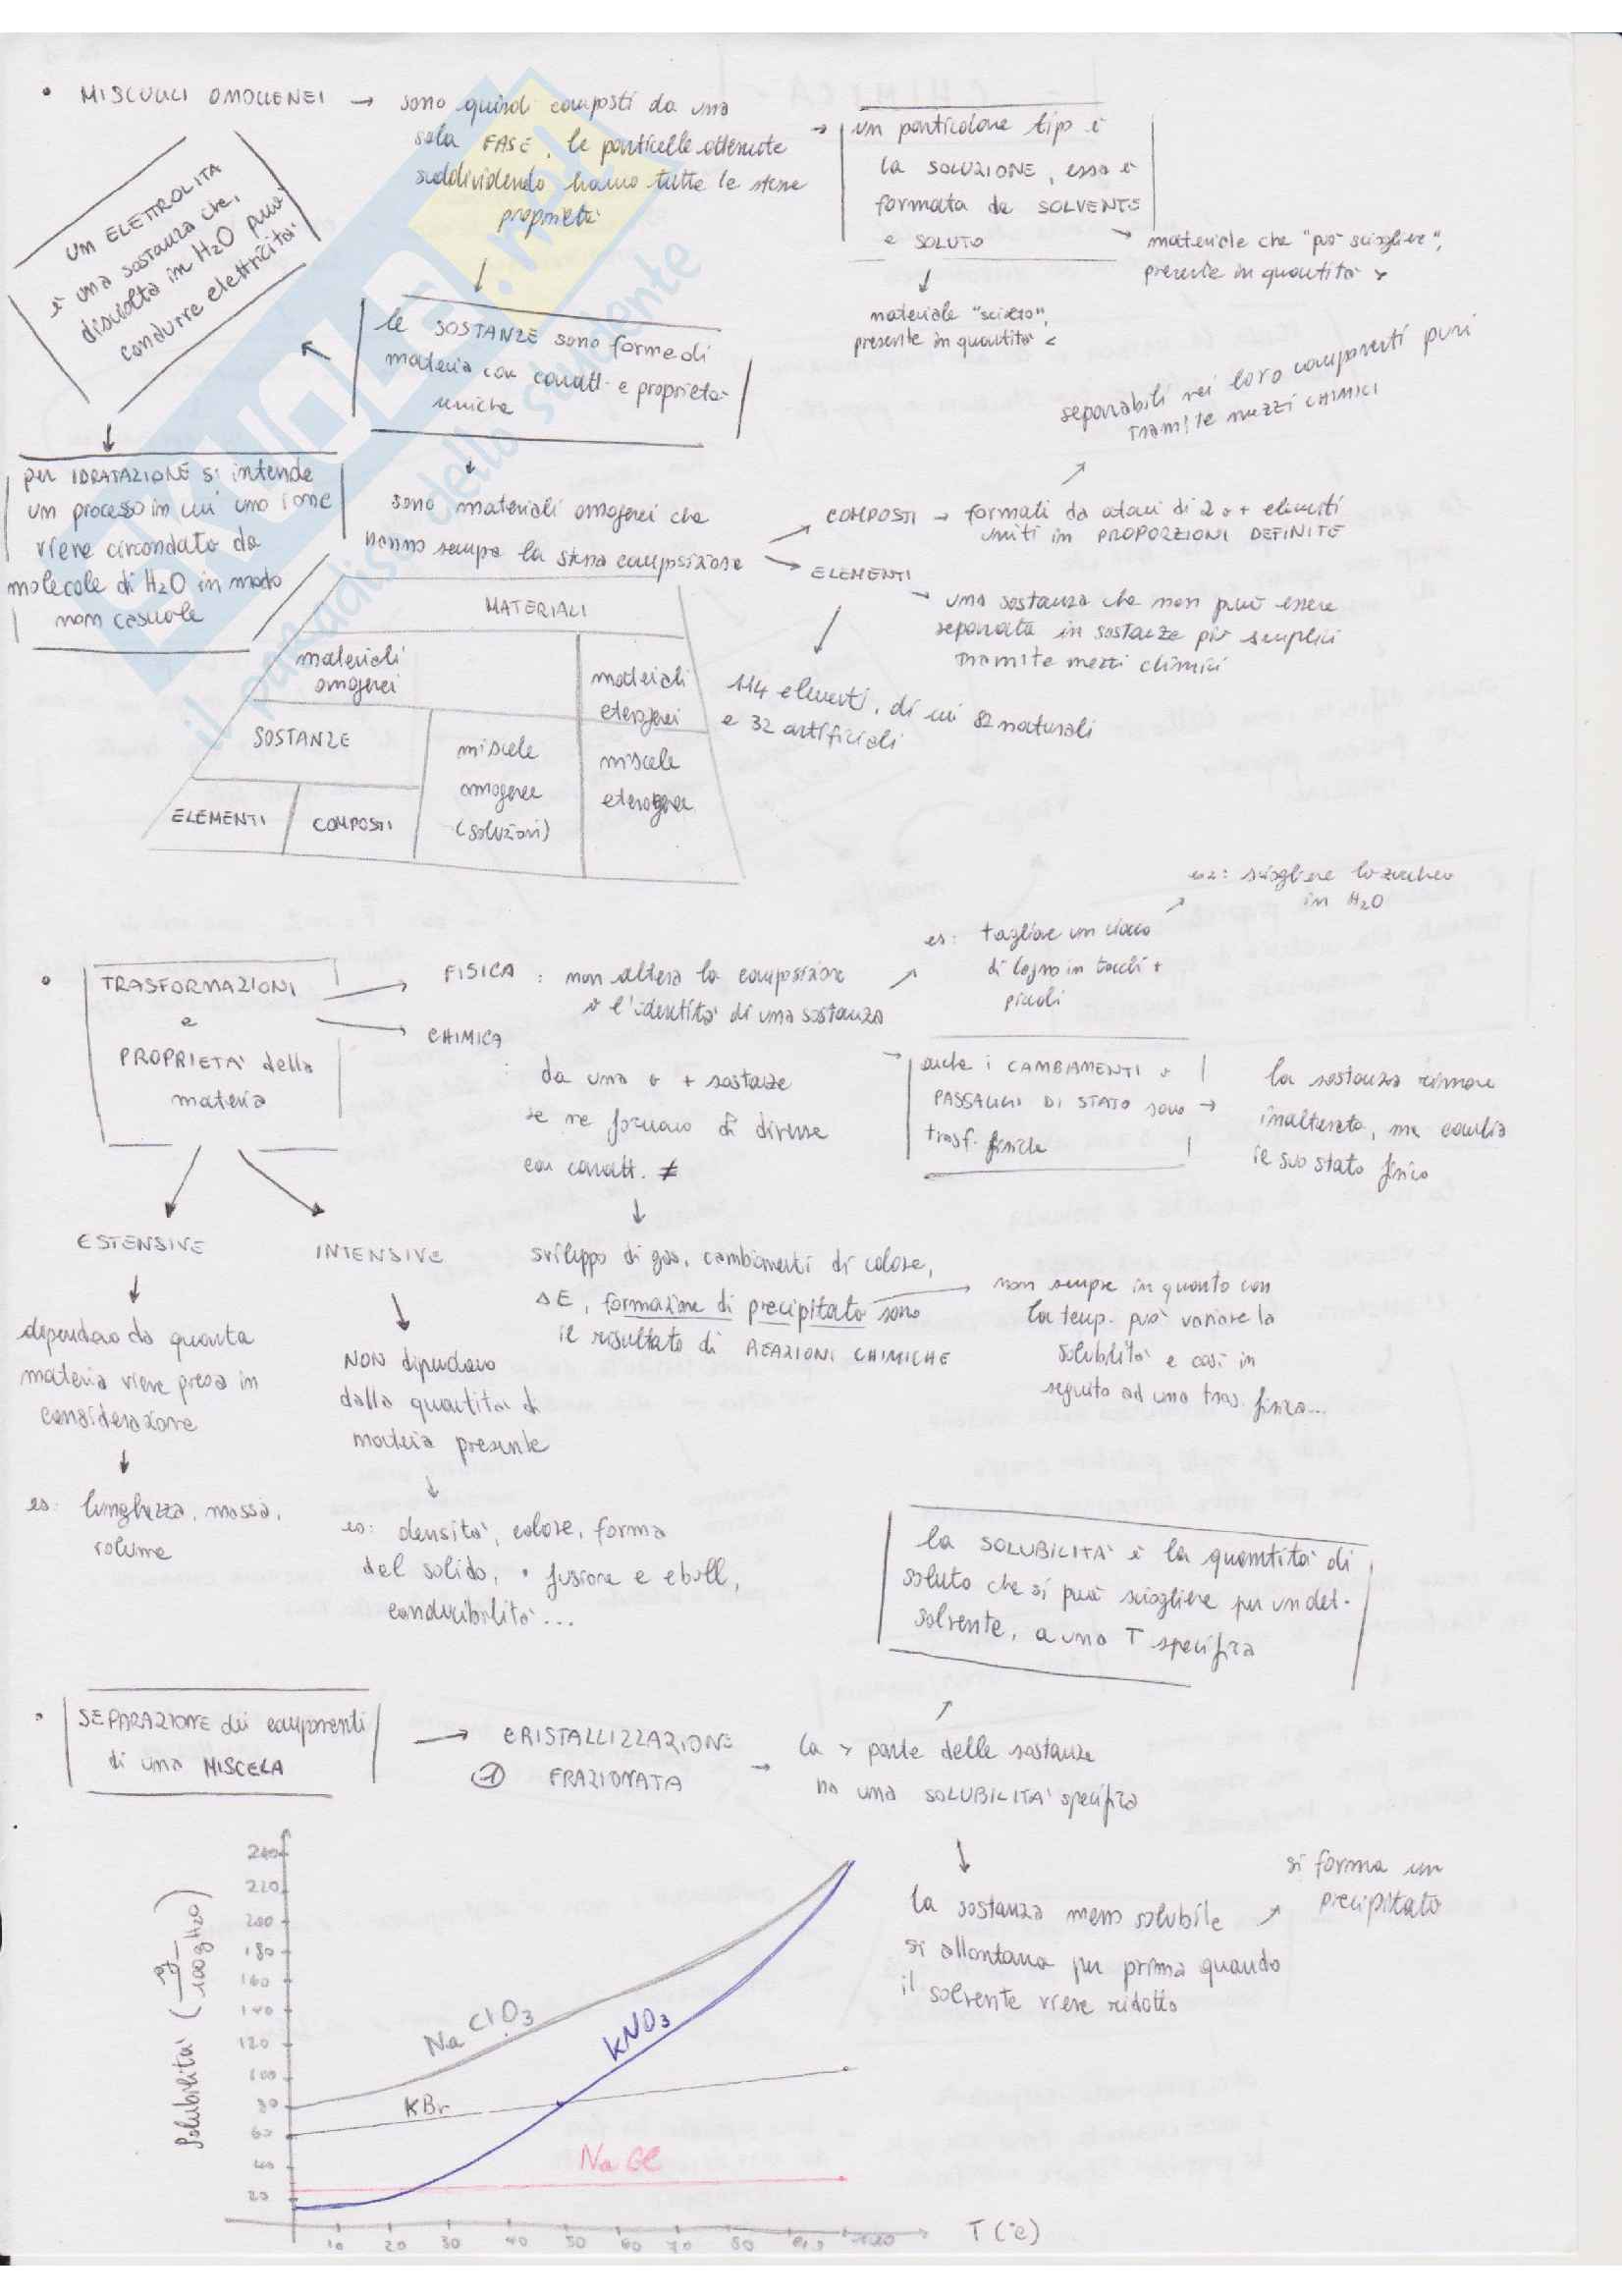 • MISCUGLI OMOGENEI → sono quindi composti da una
sola FASE, le particelle ottenute
suddividendo hanno tutte le stesse
proprietà
→ un particolare tipo è
la SOLUZIONE, essa è
formata da SOLVENTE
e SOLUTO
materiale che "può sciogliere",
presente in quantità >
materiale "sciolto",
presente in quantità <
UN ELETTROLITA
è una sostanza che,
disciolta in H₂O può
condurre elettricità
le SOSTANZE sono forme di
materia con caratt. e proprietà
uniche
per IDRATAZIONE si intende
un processo in cui uno ione
viene circondato da
molecole di H₂O in modo
non casuale
sono materiali omogenei che
hanno sempre la stessa composizione
COMPOSTI → formati da atomi di 2 o + elementi
uniti in PROPORZIONI DEFINITE
separabili nei loro componenti puri
tramite mezzi CHIMICI
ELEMENTI
una sostanza che non può essere
separata in sostanze più semplici
tramite mezzi chimici
114 elementi, di cui 82 naturali
e 32 artificiali
MATERIALI
materiali
omogenei
materiali
eterogenei
SOSTANZE
miscele
omogenee
(soluzioni)
miscele
eterogenee
ELEMENTI
COMPOSTI
• TRASFORMAZIONI
e
PROPRIETÀ della
materia
FISICA : non altera la composizione
o l'identità di una sostanza
es: tagliare un ciocco
di legno in tocchi +
piccoli
es2: sciogliere lo zucchero
in H₂O
CHIMICA :
da una o + sostanze
se ne formano di diverse
con caratt. ≠
anche i CAMBIAMENTI o
PASSAGGI DI STATO sono →
trasf. fisiche
la sostanza rimane
inalterata, ma cambia
il suo stato fisico
ESTENSIVE
INTENSIVE
sviluppo di gas, cambiamenti di colore,
ΔE, formazione di precipitato sono
il risultato di REAZIONI CHIMICHE
non sempre in quanto con
la temp. può variare la
solubilità e così in
seguito ad una tras. fisica...
dipendono da quanta
materia viene presa in
considerazione
NON dipendono
dalla quantità di
materia presente
es: lunghezza, massa,
volume
es: densità, colore, forma
del solido, • fusione e eboll,
conducibilità...
la SOLUBILITÀ è la quantità di
soluto che si può sciogliere per un det.
solvente, a una T specifica
• SEPARAZIONE dei componenti
di una MISCELA
→ CRISTALLIZZAZIONE
① FRAZIONATA
→ la > parte delle sostanze
ha una SOLUBILITÀ specifica
la sostanza meno solubile
si allontana per prima quando
il solvente viene ridotto
si forma un
precipitato
Solubilità (g/100g H₂O)
240
220
200
180
160
140
120
100
80
60
40
20
NaClO₃
KNO₃
KBr
NaCl
10 20 30 40 50 60 70 80
T (°C)
SKUOLA.net
il paradiso dello studente